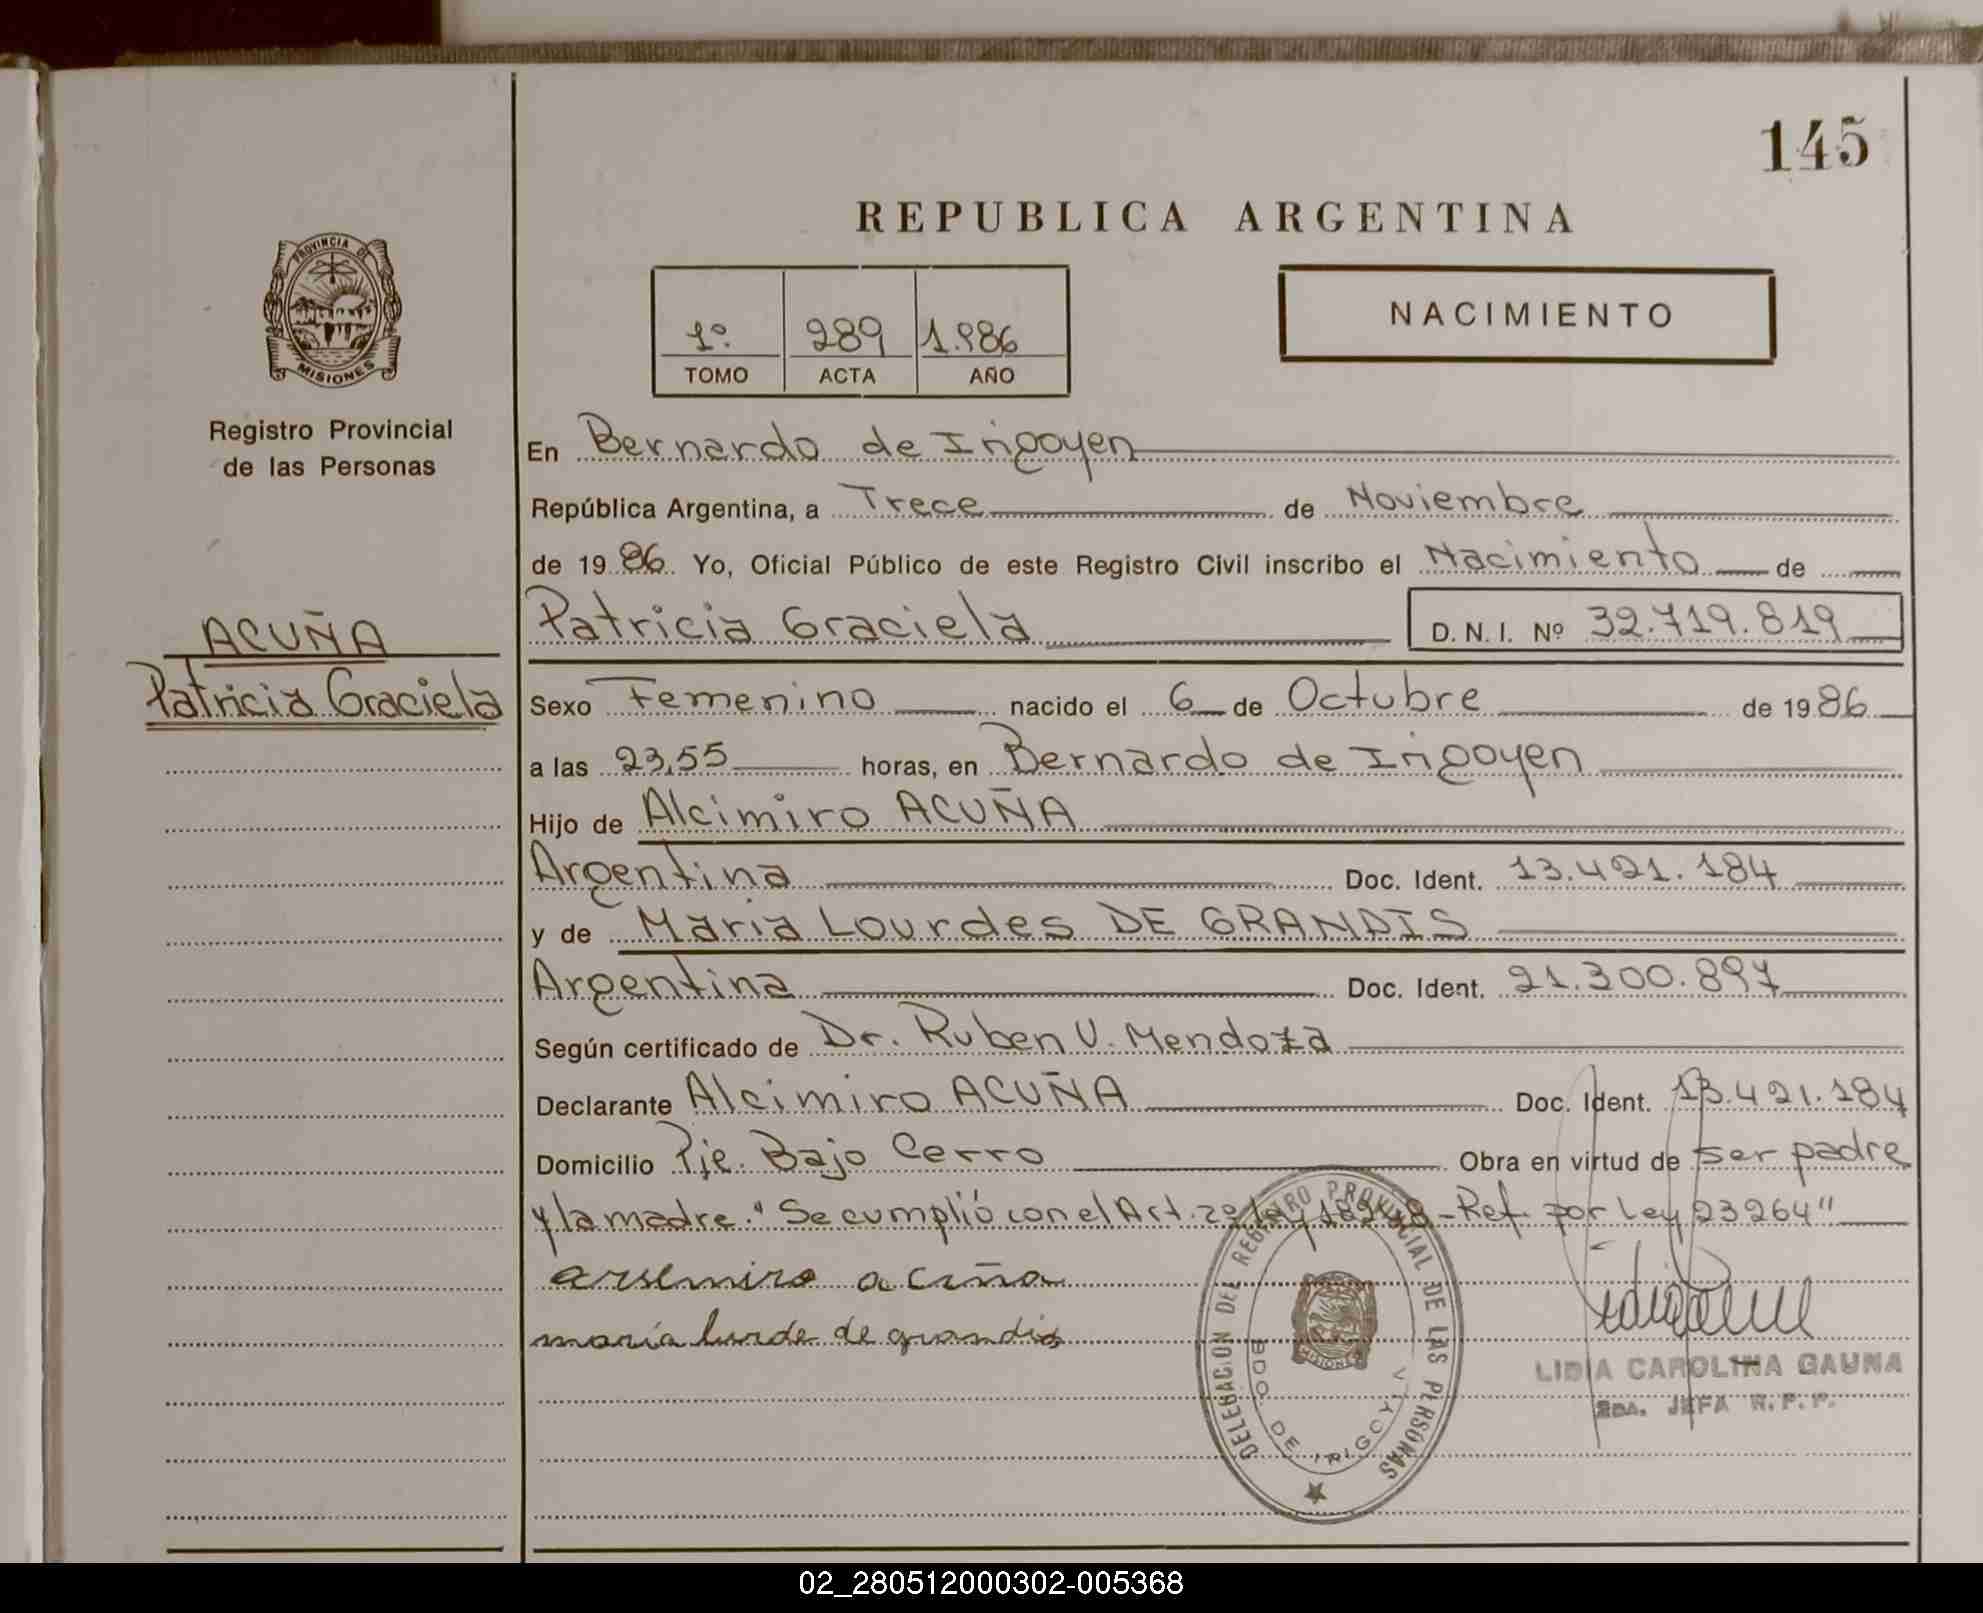 145
REPUBLICA ARGENTINA
PROVINCIA DE
MISIONES
1º. 289 1.986
TOMO ACTA AÑO
NACIMIENTO
Registro Provincial
de las Personas
En Bernardo de Irigoyen
República Argentina, a Trece de Noviembre
de 1986. Yo, Oficial Público de este Registro Civil inscribo el Nacimiento de
Patricia Graciela D. N. I. Nº 32.719.819
ACUÑA
Patricia Graciela
Sexo Femenino nacido el 6 de Octubre de 1986
a las 23,55 horas, en Bernardo de Irigoyen
Hijo de Alcimiro ACUÑA
Argentina Doc. Ident. 13.421.184
y de Maria Lourdes DE GRANDIS
Argentina Doc. Ident. 21.300.897
Según certificado de Dr. Ruben V. Mendoza
Declarante Alcimiro ACUÑA Doc. Ident. 13.421.184
Domicilio Pje. Bajo Cerro Obra en virtud de ser padre
y la madre. "Se cumplió con el Art. 2º Ley 18248 - Ref. por Ley 23264"
arsemiro acuña
maria lurde de grandis
DELEGACION DEL REGISTRO PROVINCIAL DE LAS PERSONAS
BDO. DE IRIGOYEN
MISIONES
LIDIA CAROLINA GAUNA
2DA. JEFA R. P. P.
02_280512000302-005368